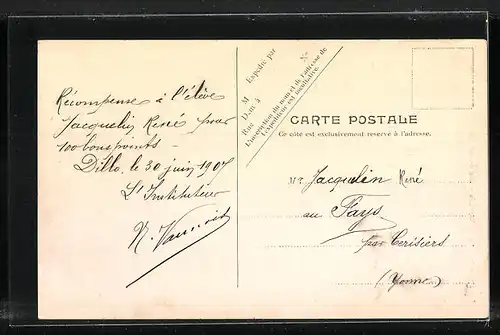 Récompense à l'élève
Jacquelin René pour
100 bons points -
Dillo, le 30 juin 1907
L'Instituteur
Expédié par
M
D.m à
Rue
No
L'inscription du nom et de l'adresse de
l'expéditeur est facultative.
CARTE POSTALE
Ce côté est exclusivement réservé à l'adresse.
Mr Jacquelin René
au Fays
par Cerisiers
(Yonne)